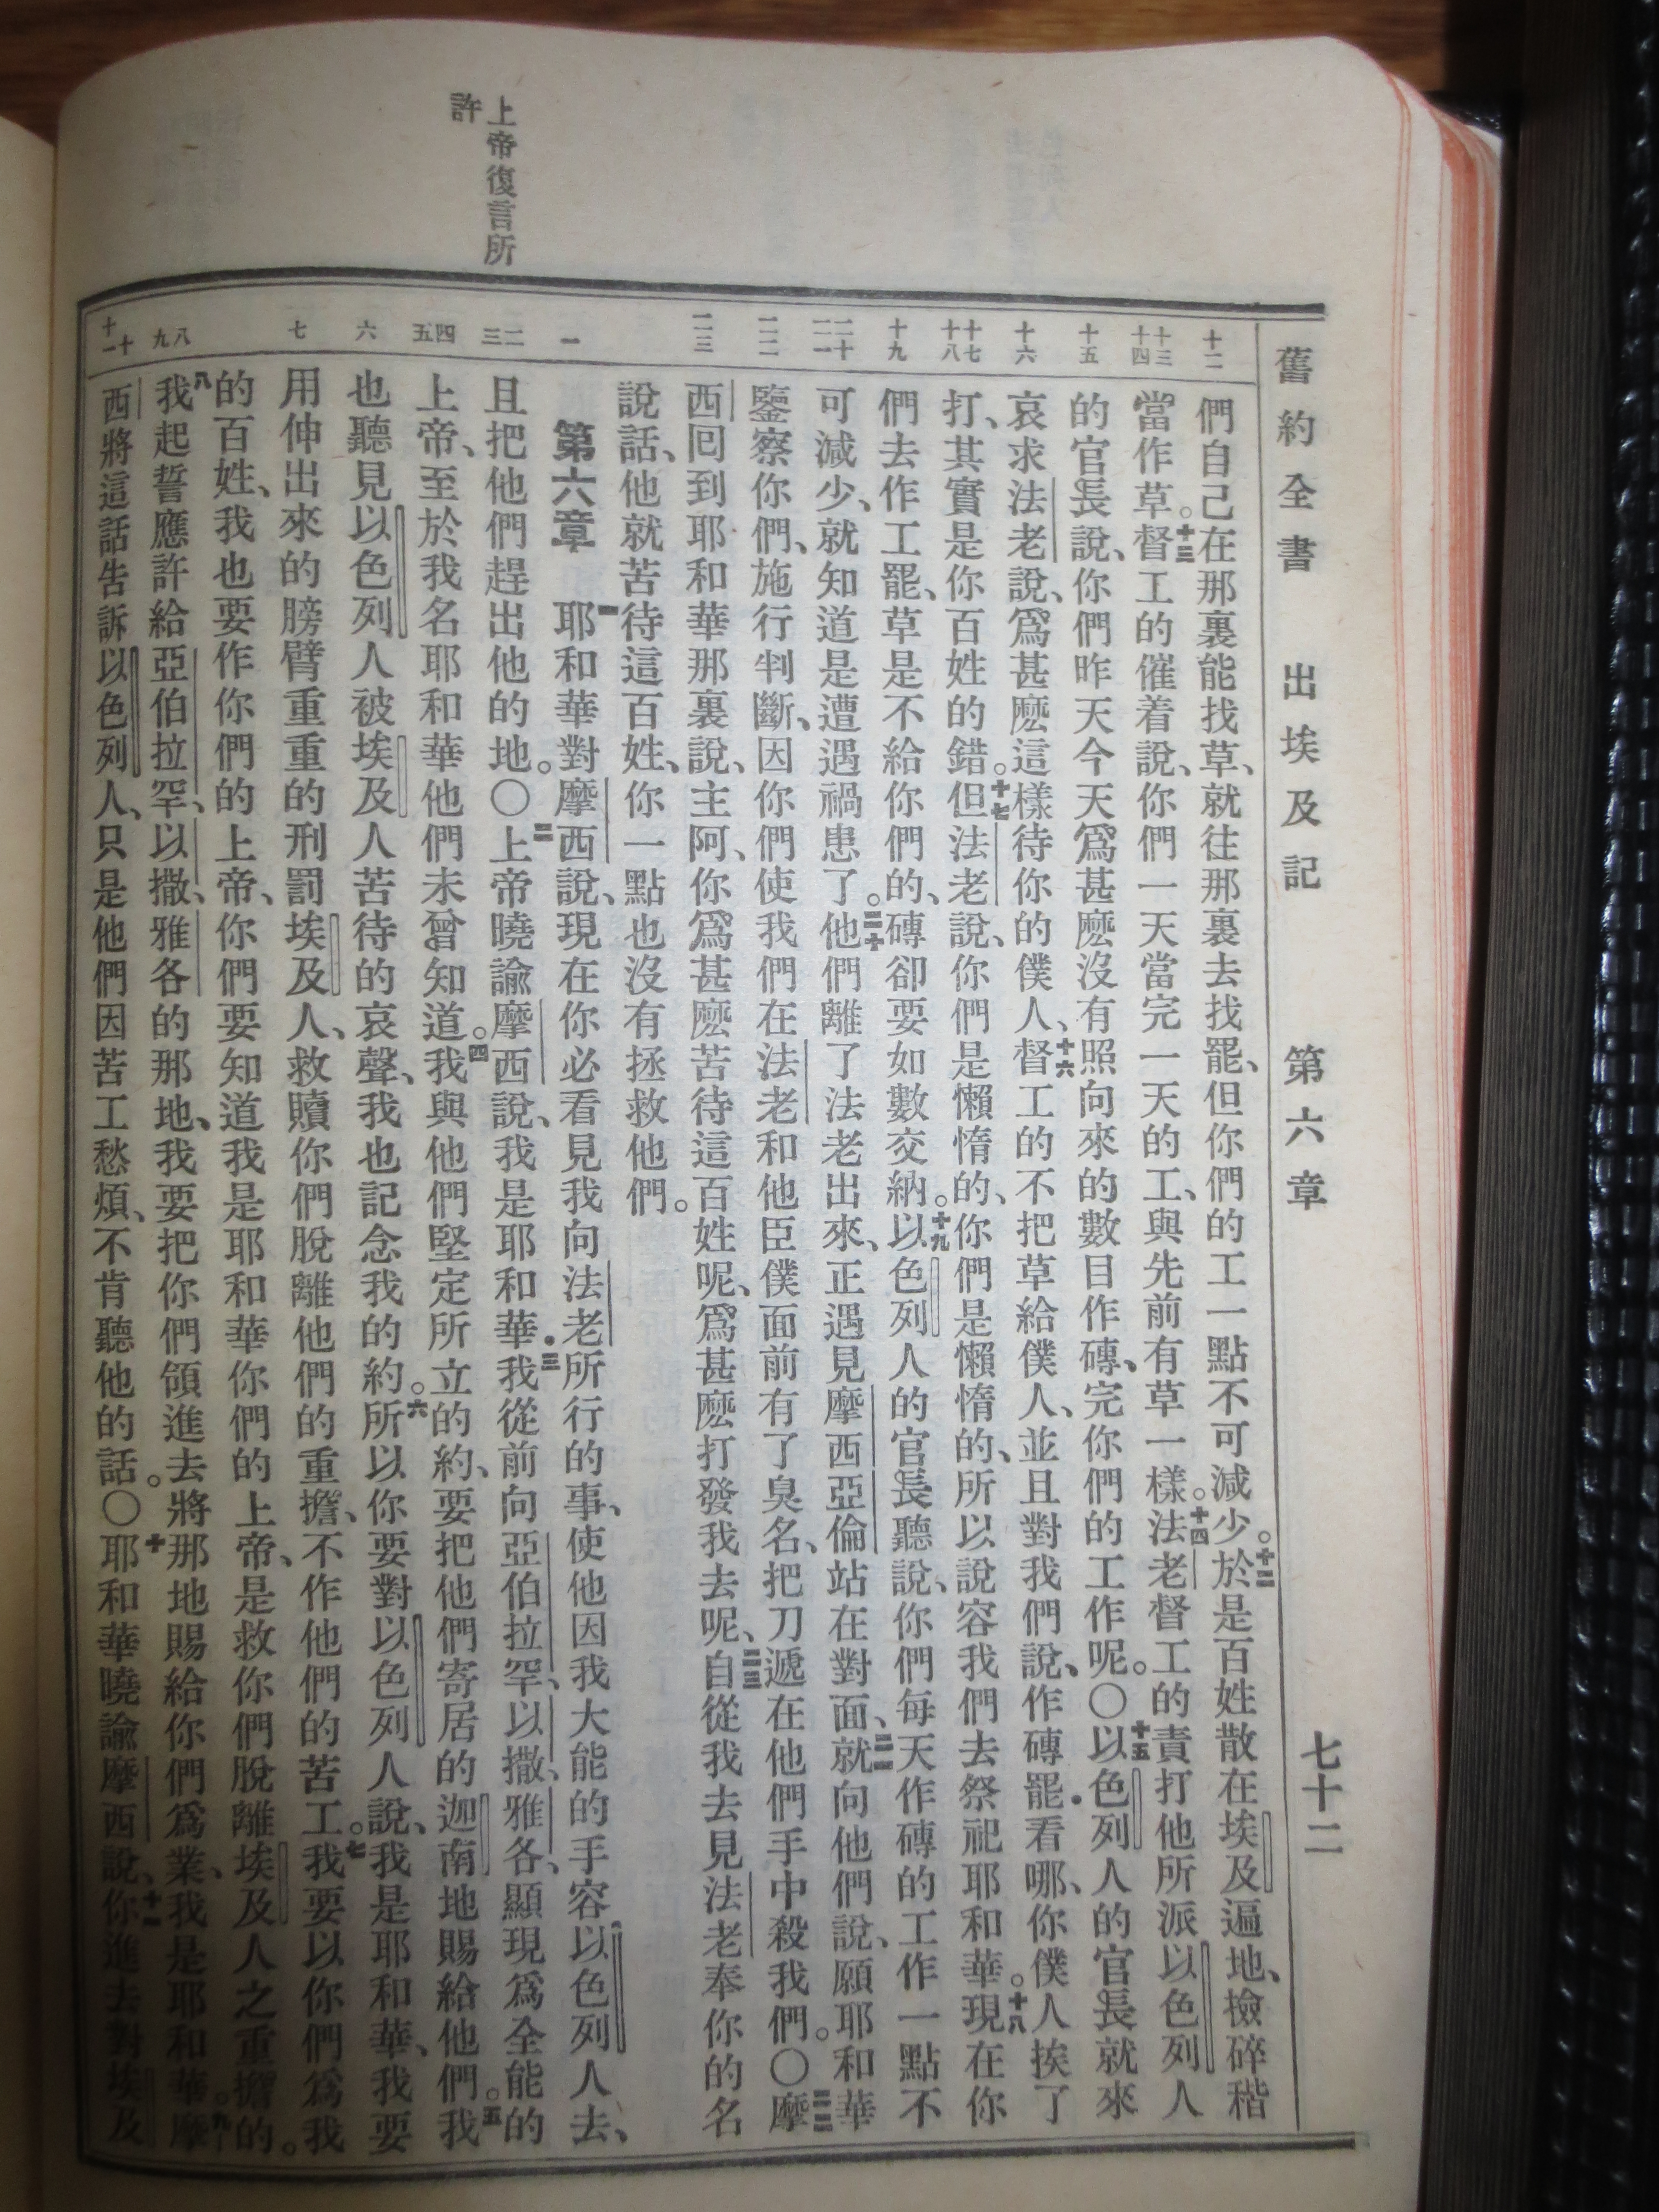 舊約全書 出埃及記 第六章 七十二
上帝復言所
許
十二
十三 十四
十五
十六
十七 十八
十九
二十 二一
二二
二三
一
二 三
四 五
六
七
八 九
十 十一
們自己在那裏能找草、就往那裏去找罷、但你們的工一點不可減少。十二於是百姓散在埃及遍地、撿碎稭
當作草。十三督工的催着說、你們一天當完一天的工、與先前有草一樣。十四法老督工的責打他所派以色列人
的官長說、你們昨天今天爲甚麽沒有照向來的數目作磚、完你們的工作呢。〇十五以色列人的官長就來
哀求法老說、爲甚麽這樣待你的僕人、十六督工的不把草給僕人、並且對我們說、作磚罷．看哪、你僕人挨了
打、其實是你百姓的錯。十七但法老說、你們是懶惰的、你們是懶惰的、所以說容我們去祭祀耶和華。十八現在你
們去作工罷、草是不給你們的、磚卻要如數交納。十九以色列人的官長聽說、你們每天作磚的工作一點不
可減少、就知道是遭遇禍患了。二十他們離了法老出來、正遇見摩西亞倫站在對面、二一就向他們說、願耶和華
鑒察你們、施行判斷、因你們使我們在法老和他臣僕面前有了臭名、把刀遞在他們手中殺我們。〇二二摩
西囘到耶和華那裏說、主阿、你爲甚麽苦待這百姓呢、爲甚麽打發我去呢、二三自從我去見法老奉你的名
說話、他就苦待這百姓、你一點也沒有拯救他們。
第六章 一耶和華對摩西說、現在你必看見我向法老所行的事、使他因我大能的手容以色列人去、
且把他們趕出他的地。〇二上帝曉諭摩西說、我是耶和華．三我從前向亞伯拉罕、以撒、雅各、顯現爲全能的
上帝、至於我名耶和華他們未曾知道。四我與他們堅定所立的約、要把他們寄居的迦南地賜給他們。五我
也聽見以色列人被埃及人苦待的哀聲、我也記念我的約。六所以你要對以色列人說、我是耶和華、我要
用伸出來的膀臂重重的刑罰埃及人、救贖你們脫離他們的重擔、不作他們的苦工。七我要以你們爲我
的百姓、我也要作你們的上帝、你們要知道我是耶和華你們的上帝、是救你們脫離埃及人之重擔的。
八我起誓應許給亞伯拉罕、以撒、雅各的那地、我要把你們領進去將那地賜給你們爲業、我是耶和華。九摩
西將這話告訴以色列人、只是他們因苦工愁煩、不肯聽他的話。〇十耶和華曉諭摩西說、十一你進去對埃及